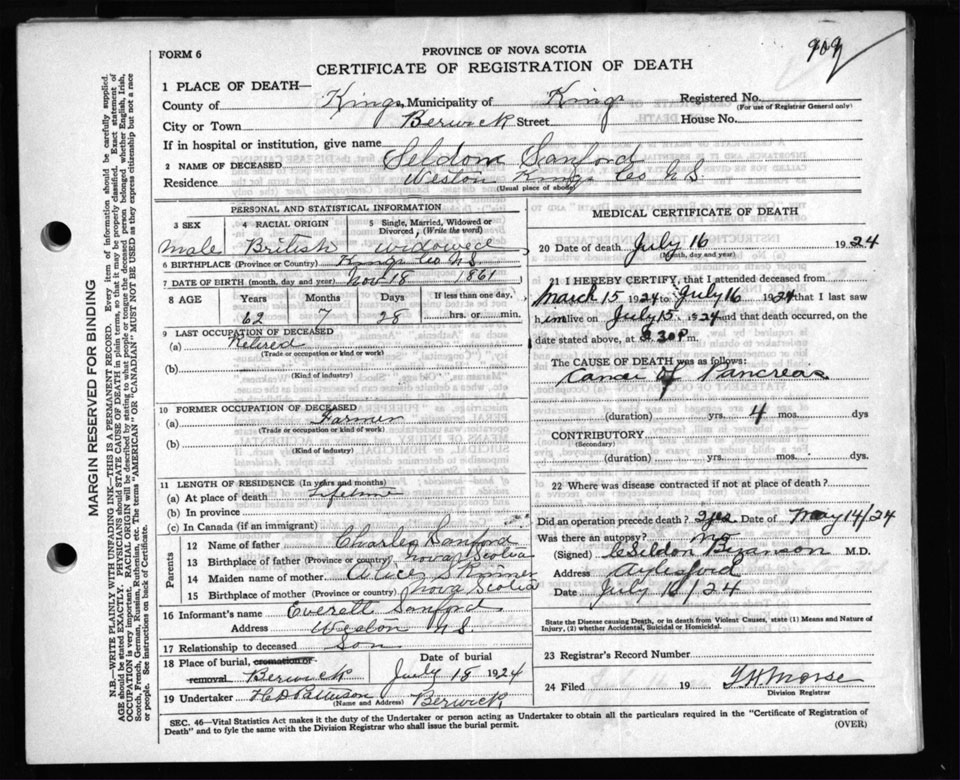 909
FORM 6
PROVINCE OF NOVA SCOTIA
CERTIFICATE OF REGISTRATION OF DEATH
1 PLACE OF DEATH—
County of Kings, Municipality of Kings Registered No.
(For use of Registrar General only)
City or Town Berwick Street House No.
If in hospital or institution, give name
2 NAME OF DECEASED Seldom Sanford
Residence Weston Kings Co N.S.
(Usual place of abode)
PERSONAL AND STATISTICAL INFORMATION
3 SEX 4 RACIAL ORIGIN 5 Single, Married, Widowed or Divorced, (Write the word)
Male British widowed
6 BIRTHPLACE (Province or Country) Kings Co N.S.
7 DATE OF BIRTH (month, day and year) Nov 18 1861
8 AGE Years Months Days If less than one day,
62 7 28 hrs. or min.
9 LAST OCCUPATION OF DECEASED
(a) Retired
(Trade or occupation or kind or work)
(b)
(Kind of industry)
10 FORMER OCCUPATION OF DECEASED
(a) Farmer
(Trade or occupation or kind of work)
(b)
(Kind of industry)
11 LENGTH OF RESIDENCE (In years and months)
(a) At place of death Lifetime
(b) In province
(c) In Canada (if an immigrant)
Parents
12 Name of father Charles Sanford
13 Birthplace of father (Province or country) Nova Scotia
14 Maiden name of mother Alice Skinner
15 Birthplace of mother (Province or country) Nova Scotia
16 Informant's name Everett Sanford
Address Weston N.S.
17 Relationship to deceased Son
18 Place of burial, cremation or Date of burial
removal Berwick July 18 1924
19 Undertaker H.D. Pattison Berwick
(Name and Address)
MEDICAL CERTIFICATE OF DEATH
20 Date of death July 16 1924
(Month, day and year)
21 I HEREBY CERTIFY, that I attended deceased from
March 15 1924 to July 16 1924 that I last saw
him live on July 15 1924 and that death occurred, on the
date stated above, at 30 P.m.
The CAUSE OF DEATH was as follows:
Cancer of Pancreas
(duration) yrs. 4 mos. dys
CONTRIBUTORY
(Secondary)
(duration) yrs. mos. dys.
22 Where was disease contracted if not at place of death?
Did an operation precede death? yes Date of May 14/24
Was there an autopsy? no
(Signed) Seldon Bezanson M.D.
Address Aylesford
Date July 16/24
State the Disease causing Death, or in death from Violent Causes, state (1) Means and Nature of Injury, (2) whether Accidental, Suicidal or Homicidal.
23 Registrar's Record Number
24 Filed 19 Morse
Division Registrar
SEC. 46—Vital Statistics Act makes it the duty of the Undertaker or person acting as Undertaker to obtain all the particulars required in the "Certificate of Registration of
Death" and to fyle the same with the Division Registrar who shall issue the burial permit.
(OVER)
MARGIN RESERVED FOR BINDING
N.B.—WRITE PLAINLY WITH UNFADING INK—THIS IS A PERMANENT RECORD. Every item of information should be carefully supplied.
AGE should be stated EXACTLY. PHYSICIANS should STATE CAUSE OF DEATH in plain terms, so that it may be properly classified. Exact statement of
OCCUPATION is very important. RACIAL ORIGIN will be described by stating to what people or tongue the deceased person belonged whether English, Irish,
Scotch, French, German, Russian, Ruthenian, etc. The terms "AMERICAN" OR "CANADIAN" MUST NOT BE USED as they express citizenship but not a race
or people. See instructions on back of Certificate.